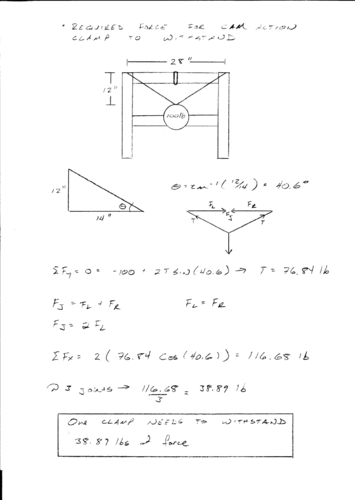 • REQUIRED FORCE FOR CAM ACTION
CLAMP TO WITHSTAND
28"
12"
100 lb
θ = tan⁻¹(12/14) = 40.6°
12"
θ
14"
F_L F_R
F_J
T T
ΣF_y = 0 = -100 + 2T sin(40.6) → T = 76.84 lb
F_J = F_L + F_R F_L = F_R
F_J = 2 F_L
ΣF_x = 2 (76.84 cos(40.6)) = 116.68 lb
3 joints → 116.68 / 3 = 38.89 lb
ONE CLAMP NEEDS TO WITHSTAND
38.89 lbs of force